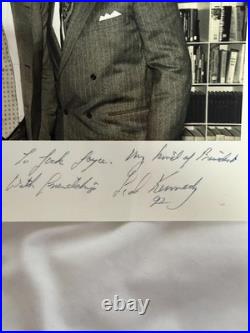 To Jack Joyce. My kind of President
With Friendship Ted Kennedy
92